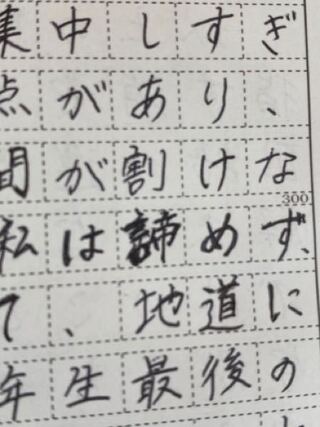 集中しすぎ
点があり、
間が割けな
300
私は諦めず、
て、地道に
年生最後の